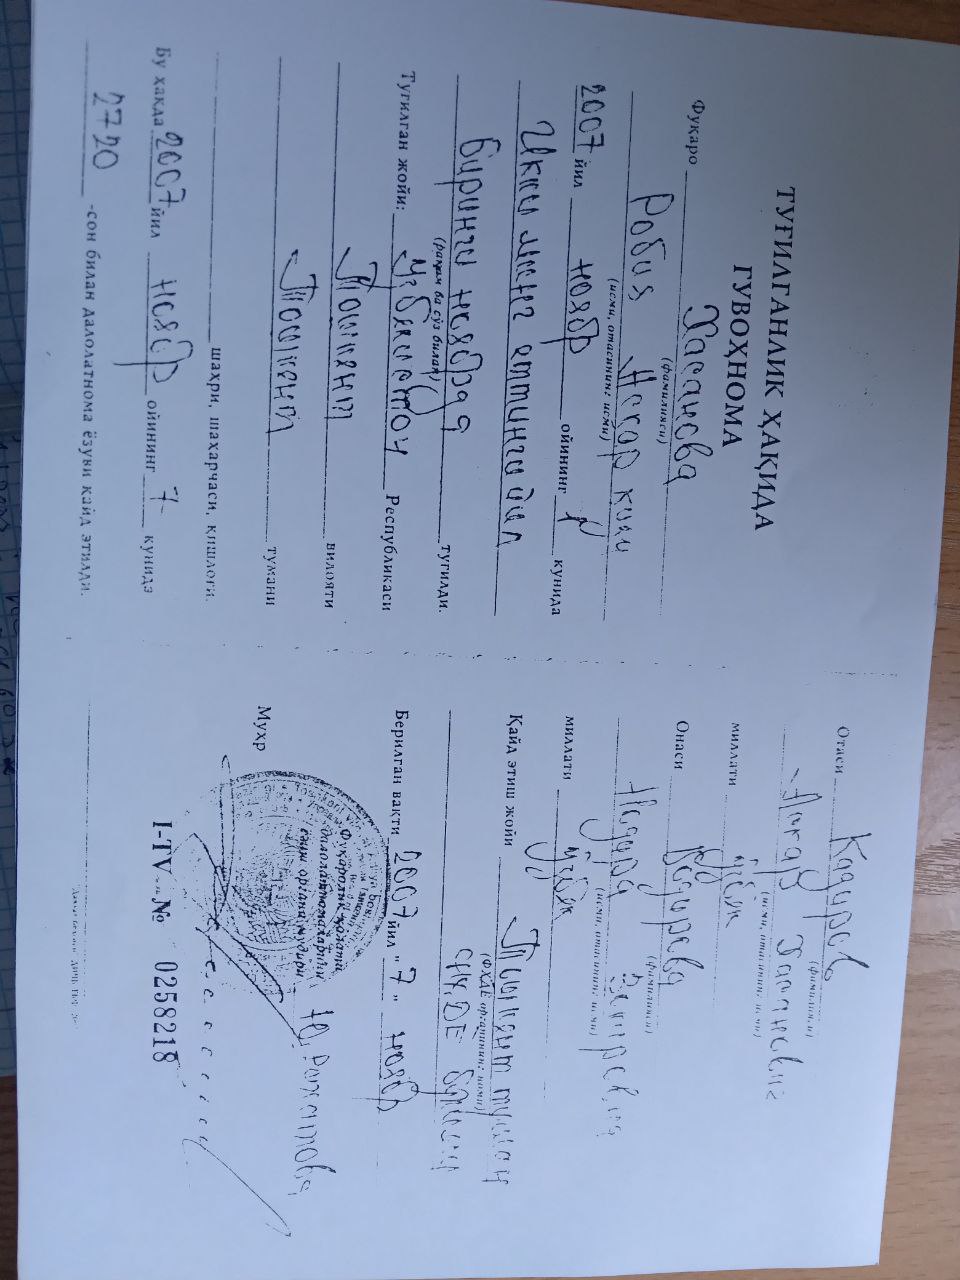 ТУҒИЛГАНЛИК ҲАҚИДА
ГУВОҲНОМА
Фуқаро Хасанова
(фамилияси)
Робия Аскар кизи
(исми, отасининг исми)
2007 йил ноябр ойининг 1 кунида
Икки минг еттинчи йил
биринчи ноябрда туғилди.
(рақам ва сўз билан)
Туғилган жойи: Узбекистон Республикаси
Тошкент вилояти
Тошкент тумани
шаҳри, шаҳарчаси, қишлоғи.
Бу ҳақда 2007 йил ноябр ойининг 7 кунида
2720 -сон билан далолатнома ёзуви қайд этилди.
Отаси Кадиров
(фамилияси)
Аскар Хасанович
(исми, отасининг исми)
миллати ўзбек
Онаси Кадирова
(фамилияси)
(исми, отасининг исми)
миллати ўзбек
Қайд этиш жойи Тошкент туман
(ФХДЁ органининг номи)
Берилган вақти 2007 йил "7" ноябр
Муҳр
Фуқаролик ҳолати
далолатномаларини
ёзиш органи мудири
I-TV №
0258218